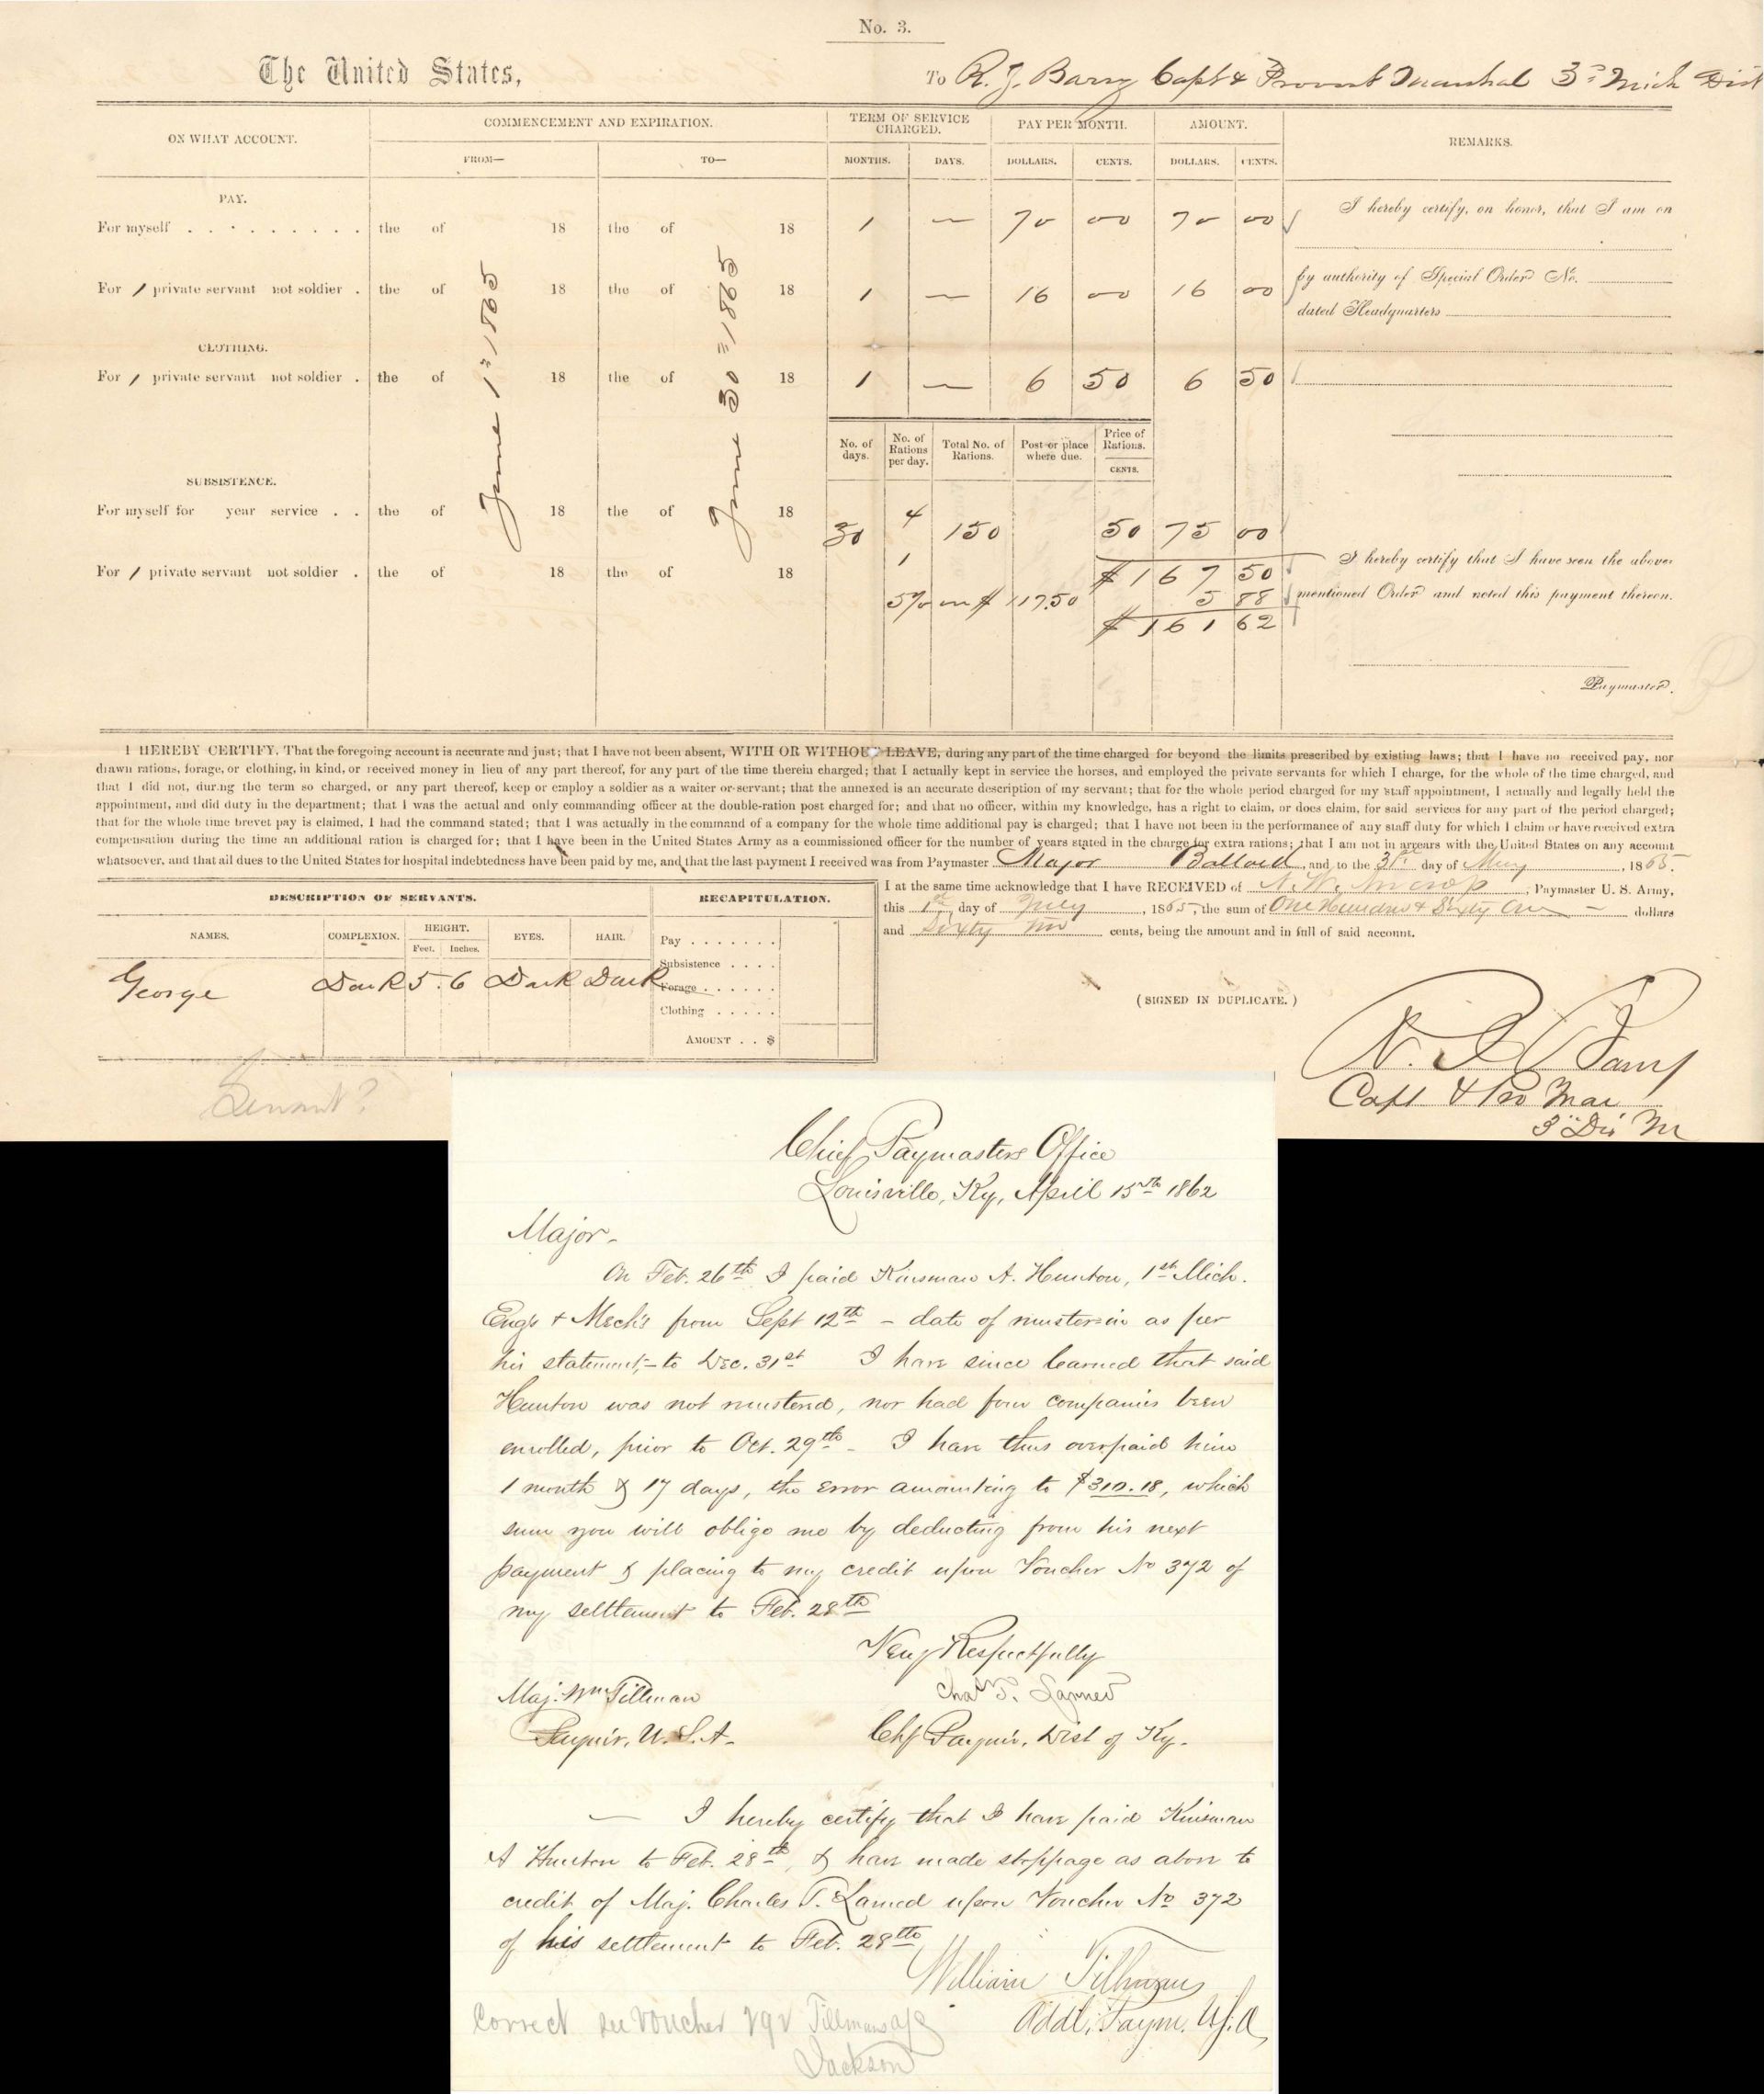 No. 3.
The United States, To R. J. Barry Capt & Provost Marshal 3d Mich Dist
ON WHAT ACCOUNT. COMMENCEMENT AND EXPIRATION. TERM OF SERVICE CHARGED. PAY PER MONTH. AMOUNT. REMARKS.
FROM— TO— MONTHS. DAYS. DOLLARS. CENTS. DOLLARS. CENTS.
PAY.
For myself . . . . . . . . . the of 18 the of 18 1 — 70 00 70 00
For 1 private servant not soldier . the of 18 the of 18 1 — 16 00 16 00
CLOTHING.
For 1 private servant not soldier . the of 18 the of 18 1 — 6 50 6 50
June 1st 1865
June 30th 1865
No. of days. No. of Rations per day. Total No. of Rations. Post or place where due. Price of Rations. CENTS.
SUBSISTENCE.
For myself for year service . . the of 18 the of 18 30 4 150 50 75 00
For 1 private servant not soldier . the of 18 the of 18 1 $167 50
5% on $117.50 5 88
$161 62
I hereby certify, on honor, that I am on
by authority of Special Order No.
dated Headquarters
I hereby certify that I have seen the above-
mentioned Order and noted this payment thereon.
Paymaster.
I HEREBY CERTIFY, That the foregoing account is accurate and just; that I have not been absent, WITH OR WITHOUT LEAVE, during any part of the time charged for beyond the limits prescribed by existing laws; that I have no received pay, nor
drawn rations, forage, or clothing, in kind, or received money in lieu of any part thereof, for any part of the time therein charged; that I actually kept in service the horses, and employed the private servants for which I charge, for the whole of the time charged, and
that I did not, during the term so charged, or any part thereof, keep or employ a soldier as a waiter or servant; that the annexed is an accurate description of my servant; that for the whole period charged for my staff appointment, I actually and legally held the
appointment, and did duty in the department; that I was the actual and only commanding officer at the double-ration post charged for; and that no officer, within my knowledge, has a right to claim, or does claim, for said services for any part of the period charged;
that for the whole time brevet pay is claimed, I had the command stated; that I was actually in the command of a company for the whole time additional pay is charged; that I have not been in the performance of any staff duty for which I claim or have received extra
compensation during the time an additional ration is charged for; that I have been in the United States Army as a commissioned officer for the number of years stated in the charge for extra rations; that I am not in arrears with the United States on any account
whatsoever, and that all dues to the United States for hospital indebtedness have been paid by me, and that the last payment I received was from Paymaster Major Ballard, and to the 31st day of May, 1865.
I at the same time acknowledge that I have RECEIVED of , Paymaster U. S. Army,
this 1st day of July, 1865, the sum of One Hundred & Sixty One — dollars
and Sixty Two cents, being the amount and in full of said account.
DESCRIPTION OF SERVANTS. RECAPITULATION.
NAMES. COMPLEXION. HEIGHT. EYES. HAIR.
Feet. Inches.
George Dark 5. 6 Dark Dark
Pay . . . . . . .
Subsistence . . . .
Forage . . . . . .
Clothing . . . . .
AMOUNT . . $
(SIGNED IN DUPLICATE.)
R. J. Barry
Capt & Pro Mar
3d Dis M
Servant?
Chief Paymasters Office
Louisville, Ky, April 15th 1862
Major-
On Feb. 26th I paid Kinsman A. Hunton, 1st Mich.
Eng's & Mech's from Sept 12th - date of muster-in as per
his statement,- to Dec. 31st I have since learned that said
Hunton was not mustered, nor had four companies been
enrolled, prior to Oct. 29th - I have thus overpaid him
1 month & 17 days, the error amounting to $310.18, which
sum you will oblige me by deducting from his next
payment & placing to my credit upon Voucher No 372 of
my settlement to Feb. 28th
Very Respectfully
Maj. Wm Tillman Chas T. Larned
Paym'r. U.S.A. Chf Paym'r. Dist of Ky.
— I hereby certify that I have paid Kinsman
A Hunton to Feb. 28th, & have made stoppage as above to
credit of Maj. Charles T. Larned upon Voucher No 372
of his settlement to Feb. 28th
William Tillman
Addl. Paym. U.S.A
Correct see voucher 292 Tillmans a/c
Jackson